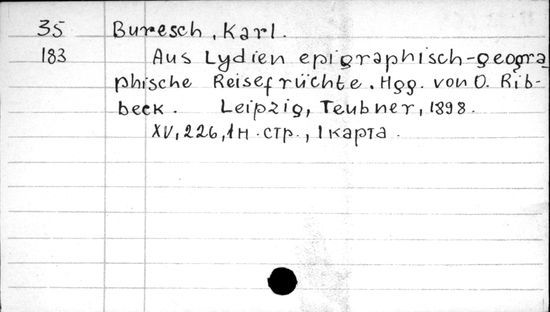 35 Buresch, Karl.
183 Aus Lydien epigraphisch-geogra
phische Reisefrüchte. Hgg. von O. Rib-
beck. Leipzig, Teubner, 1898.
XV, 226, 1 н. стр., 1 карта.